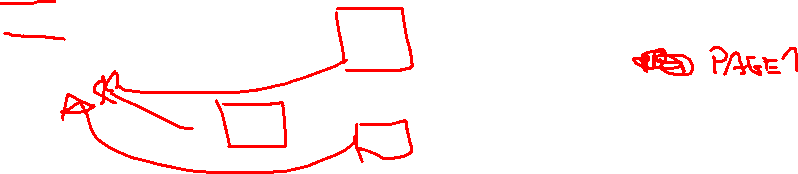 PAGE 1